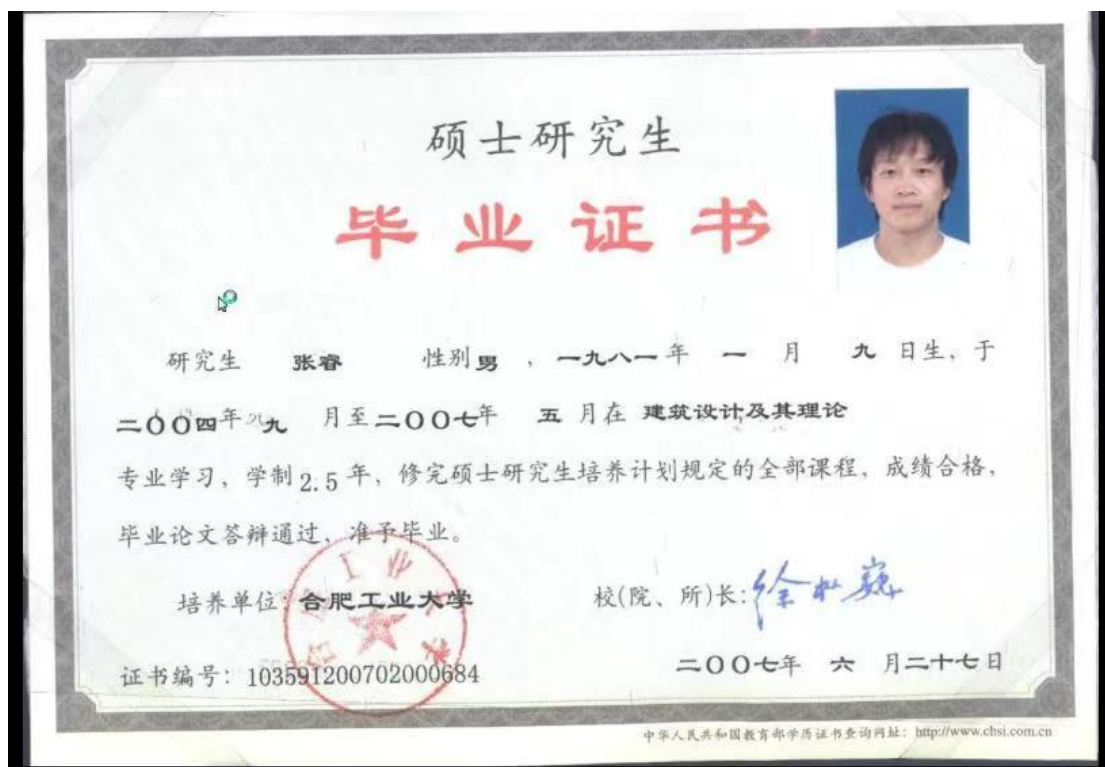 硕士研究生
毕业证书
研究生 张睿 性别男 ，一九八一年 一 月 九 日生、于
二〇〇四年 九 月至二〇〇七年 五 月在 建筑设计及其理论
专业学习，学制2.5年，修完硕士研究生培养计划规定的全部课程，成绩合格，
毕业论文答辩通过，准予毕业。
培养单位：合肥工业大学 校(院、所)长：
合肥工业大学
证书编号：103591200702000684 二〇〇七年 六 月二十七日
中华人民共和国教育部学历证书查询网址：http://www.chsi.com.cn